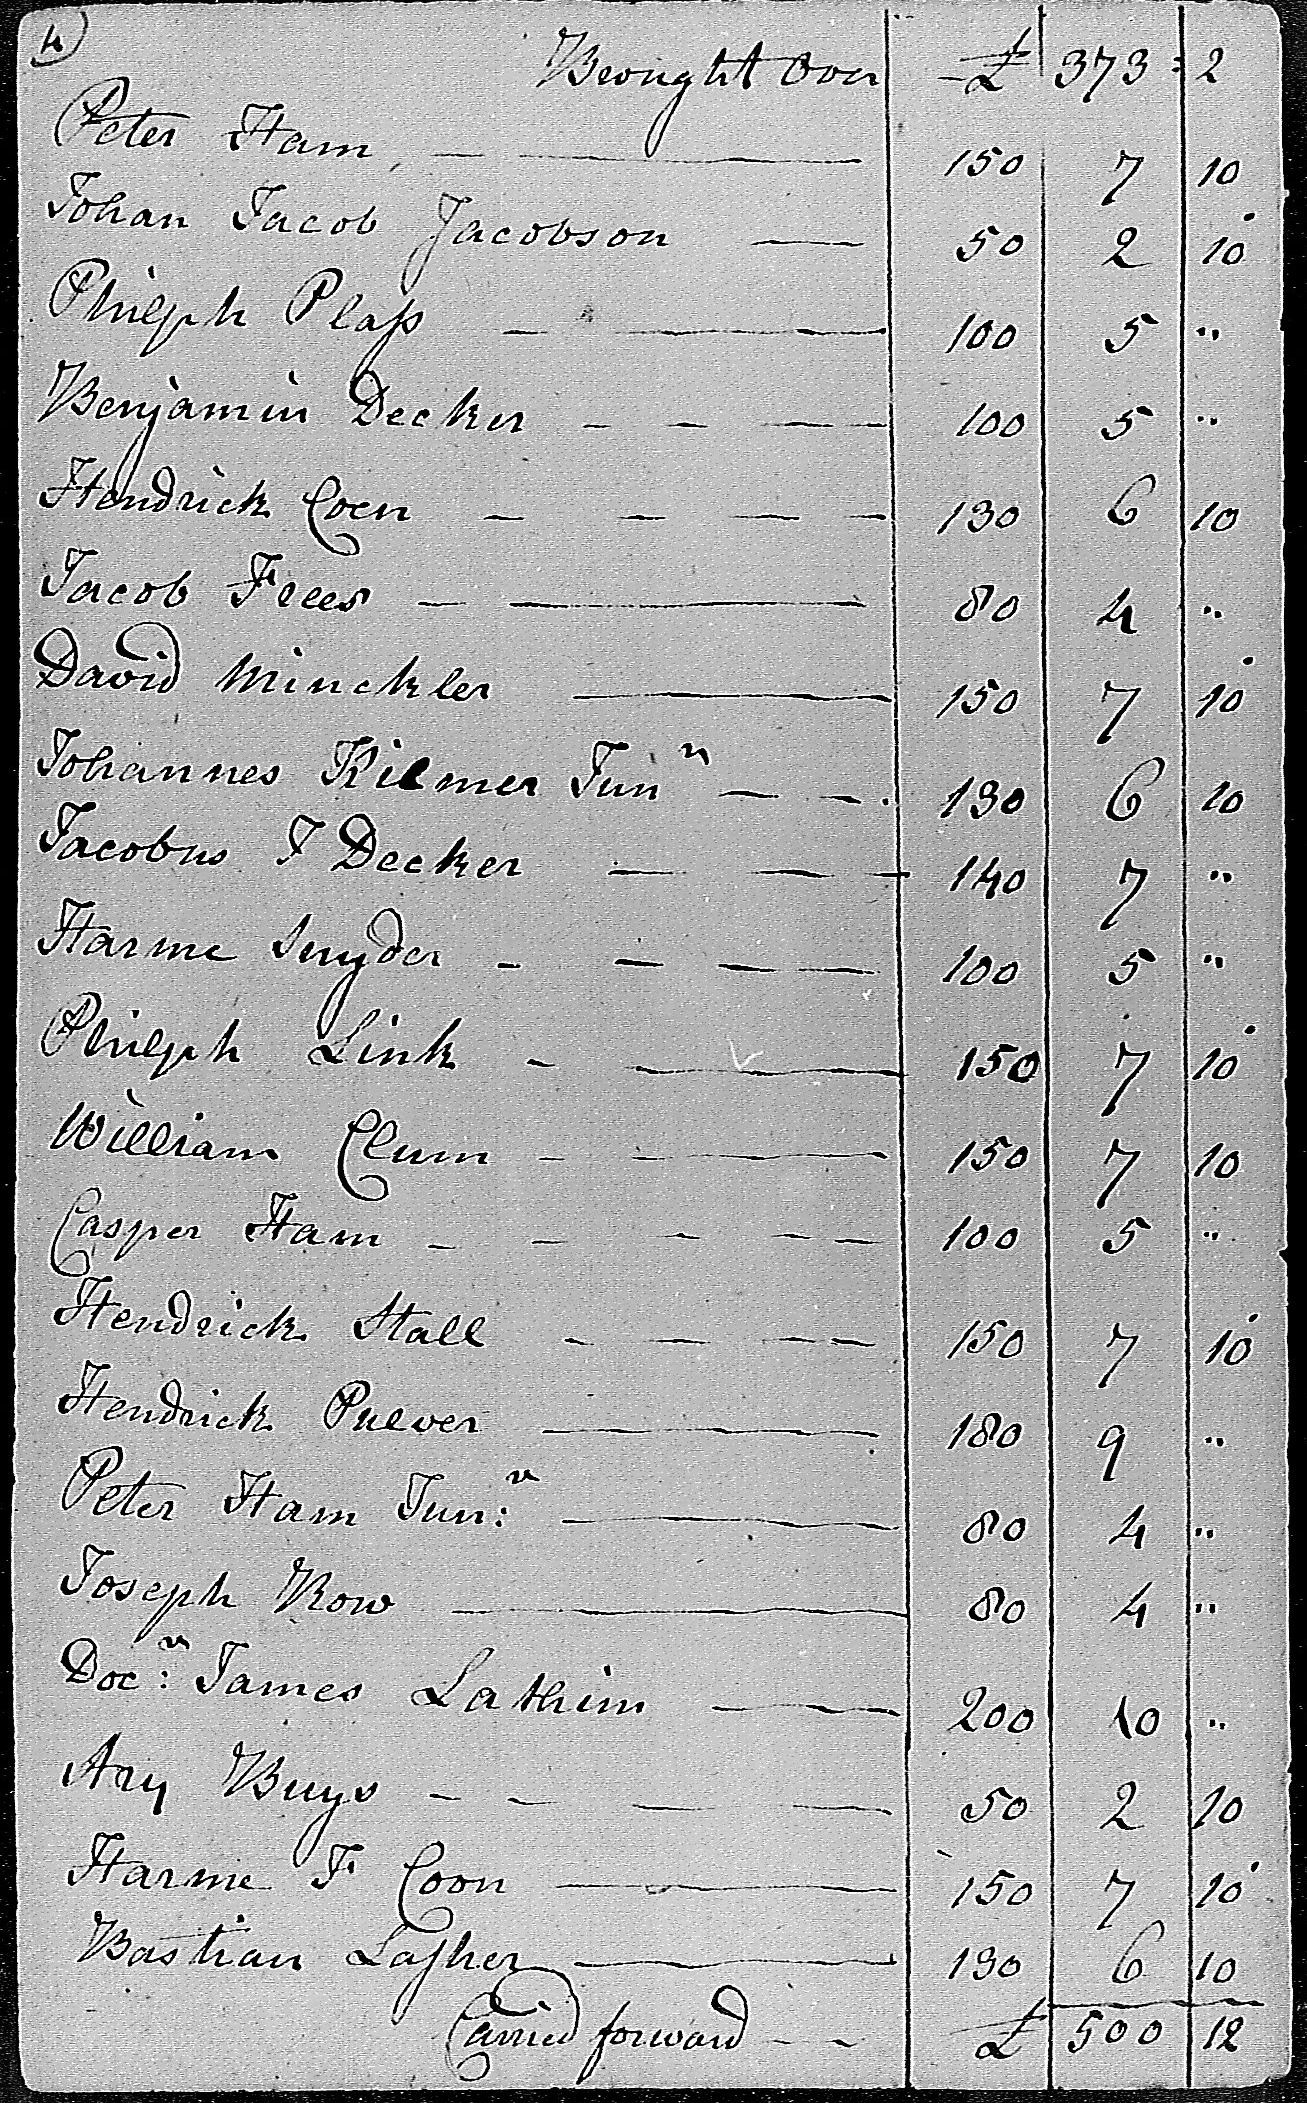 4)
Brought Over £ 373 : 2
Peter Ham 150 7 10
Johan Jacob Jacobson 50 2 10
Philiph Plass 100 5 "
Benjamin Decker 100 5 "
Hendrick Coen 130 6 10
Jacob Frees 80 4 "
David Minckler 150 7 10
Johannes Kilmer Junr 130 6 10
Jacobus J Decker 140 7 "
Harme Snyder 100 5 "
Philiph Link 150 7 10
William Clum 150 7 10
Casper Ham 100 5 "
Hendrick Stall 150 7 10
Hendrick Pulver 180 9 "
Peter Ham Jun:r 80 4 "
Joseph Row 80 4 "
Doc:r James Lathim 200 10 "
Ary Buys 50 2 10
Harme F Coon 150 7 10
Bastian Lasher 130 6 10
Carried forward £ 500 12